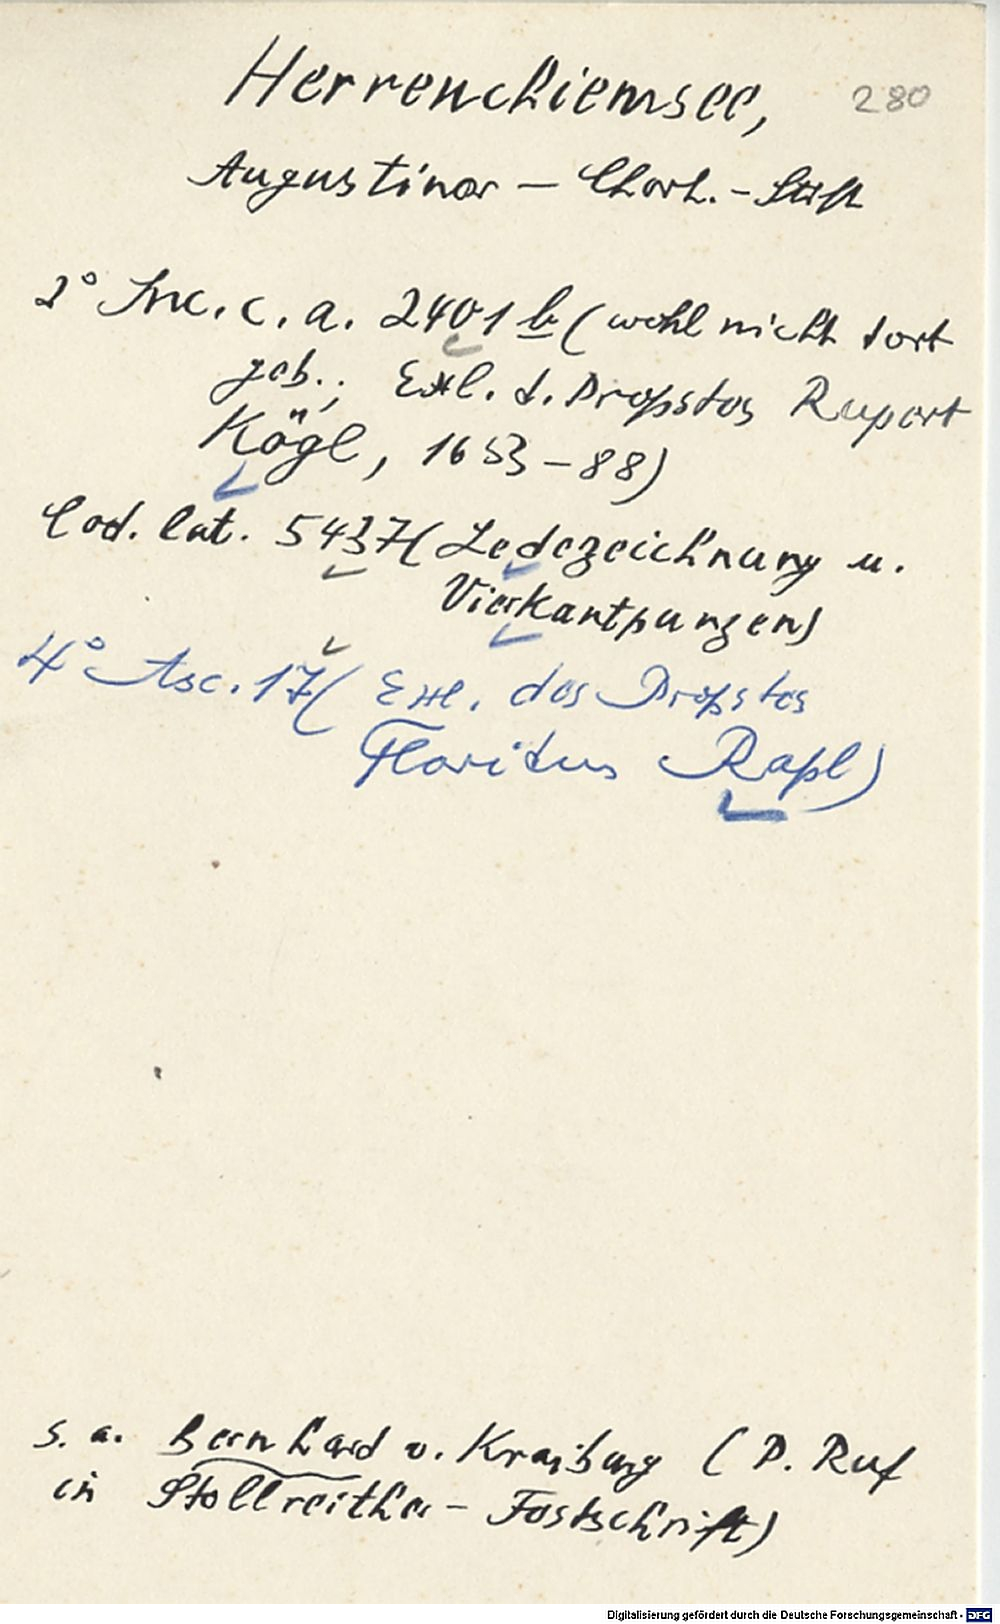 Herrenchiemsee, 280
Augustiner - Chorh. - Stift
2° Inc. c. a. 2401 b (wohl nicht dort
geb.; Exl. d. Propstes Rupert
Kögl, 1653-88)
Cod. lat. 5437 (Lederzeichnung u.
Vierkantpunzen)
4° Asc. 17 (Exl. des Propstes
Floridus Rapl)
s. a. Bernhard v. Kraiburg (P. Ruf
in Stollreither - Festschrift)
Digitalisierung gefördert durch die Deutsche Forschungsgemeinschaft - DFG